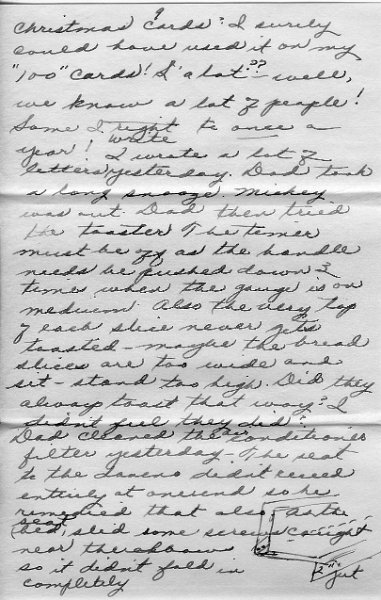 9
Christmas cards? I surely
could have used it on my
"100" cards! I a lot?? - well,
we know a lot of people!
Some I right to once a
write
year! I wrote a lot of
letters yesterday. Dad took
a long snooze. Mickey
was out. Dad then tried
the toaster. The timer
must be off as the handle
needs be pushed down 3
times when the gauge is on
medium. Also the very top
of each slice never gets
toasted - maybe the bread
slices are too wide and
set - stand too high. Did they
always toast that way? I
didn't feel they did.
Dad cleaned the air conditioner
filter yesterday - The seat
to the didn't
entirely at one end so he
remedied that also.
seat
bed, slid some screws caught
near the elbow
so it didn't fold in
completely
3" jut